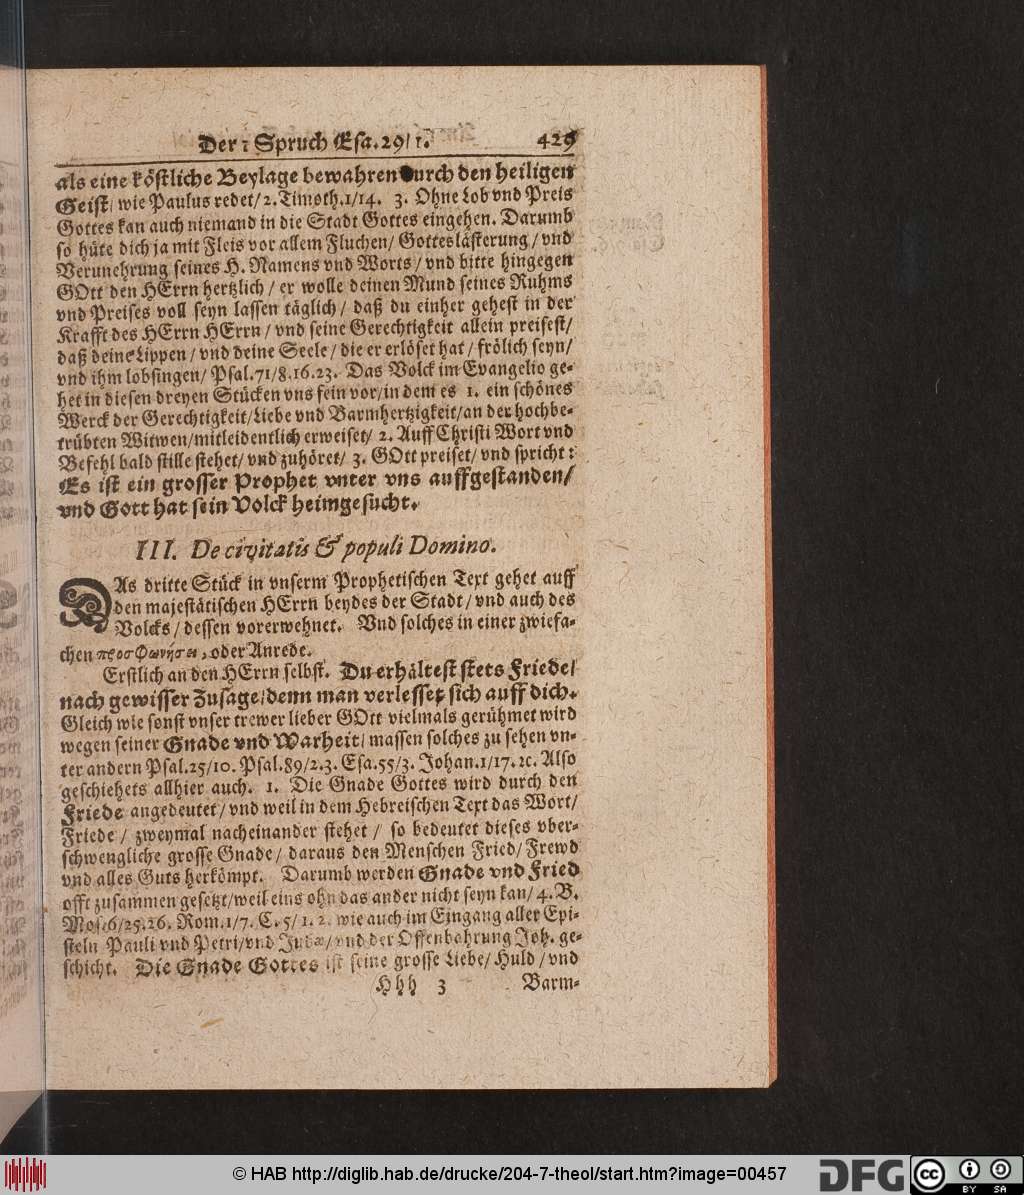 Der: Spruch Esa. 29/1. 429
als eine köstliche Beylage bewahren durch den heiligen
Geist/ wie Paulus redet/ 2. Timoth. 1/14. 3. Ohne Lob vnd Preis
Gottes kan auch niemand in die Stadt Gottes eingehen. Darumb
so hüte dich ja mit Fleis vor allem Fluchen/ Gotteslästerung/ vnd
Verunehrung seines H. Namens vnd Worts/ vnd bitte hingegen
GOtt den HErrn hertzlich/ er wolle deinen Mund seines Ruhms
vnd Preises voll seyn lassen täglich/ daß du einher gehest in der
Krafft des HErrn HErrn/ vnd seine Gerechtigkeit allein preisest/
daß deine Lippen/ vnd deine Seele/ die er erlöset hat/ frölich seyn/
vnd ihm lobsingen/ Psal. 71/8.16.23. Das Volck im Evangelio ge-
het in diesen dreyen Stücken vns fein vor/ in dem es 1. ein schönes
Werck der Gerechtigkeit/ Liebe vnd Barmhertzigkeit/ an der hochbe-
trübten Witwen/ mitleidentlich erweiset/ 2. Auff Christi Wort vnd
Befehl bald stille stehet/ vnd zuhöret/ 3. GOtt preiset/ vnd spricht:
Es ist ein grosser Prophet vnter vns auffgestanden/
vnd Gott hat sein Volck heimgesucht.
III. De civitatis & populi Domino.
DAs dritte Stück in vnserm Prophetischen Text gehet auff
den majestätischen HErrn beydes der Stadt/ vnd auch des
Volcks/ dessen vorerwehnet. Vnd solches in einer zwiefa-
chen προσφωνήσει, oder Anrede.
Erstlich an den HErrn selbst. Du erhältest stets Friede/
nach gewisser Zusage/ denn man verlesset sich auff dich.
Gleich wie sonst vnser trewer lieber GOtt vielmals gerühmet wird
wegen seiner Gnade vnd Warheit/ massen solches zu sehen vn-
ter andern Psal. 25/10. Psal. 89/2.3. Esa. 55/3. Johan. 1/17. ꝛc. Also
geschiehets allhier auch. 1. Die Gnade Gottes wird durch den
Friede angedeutet/ vnd weil in dem Hebreischen Text das Wort/
Friede/ zweymal nacheinander stehet/ so bedeutet dieses vber-
schwengliche grosse Gnade/ daraus den Menschen Fried/ Frewd
vnd alles Guts herkömpt. Darumb werden Gnade vnd Fried
offt zusammen gesetzt/ weil eins ohn das ander nicht seyn kan/ 4. B.
Mose 6/25.26. Rom. 1/7. C. 5/1.2. wie auch im Eingang aller Epi-
steln Pauli vnd Petri/ vnd Judæ/ vnd der Offenbahrung Joh. ge-
schicht. Die Gnade Gottes ist seine grosse Liebe/ Huld/ vnd
Hhh 3 Barm-
© HAB http://diglib.hab.de/drucke/204-7-theol/start.htm?image=00457
DFG
cc BY SA